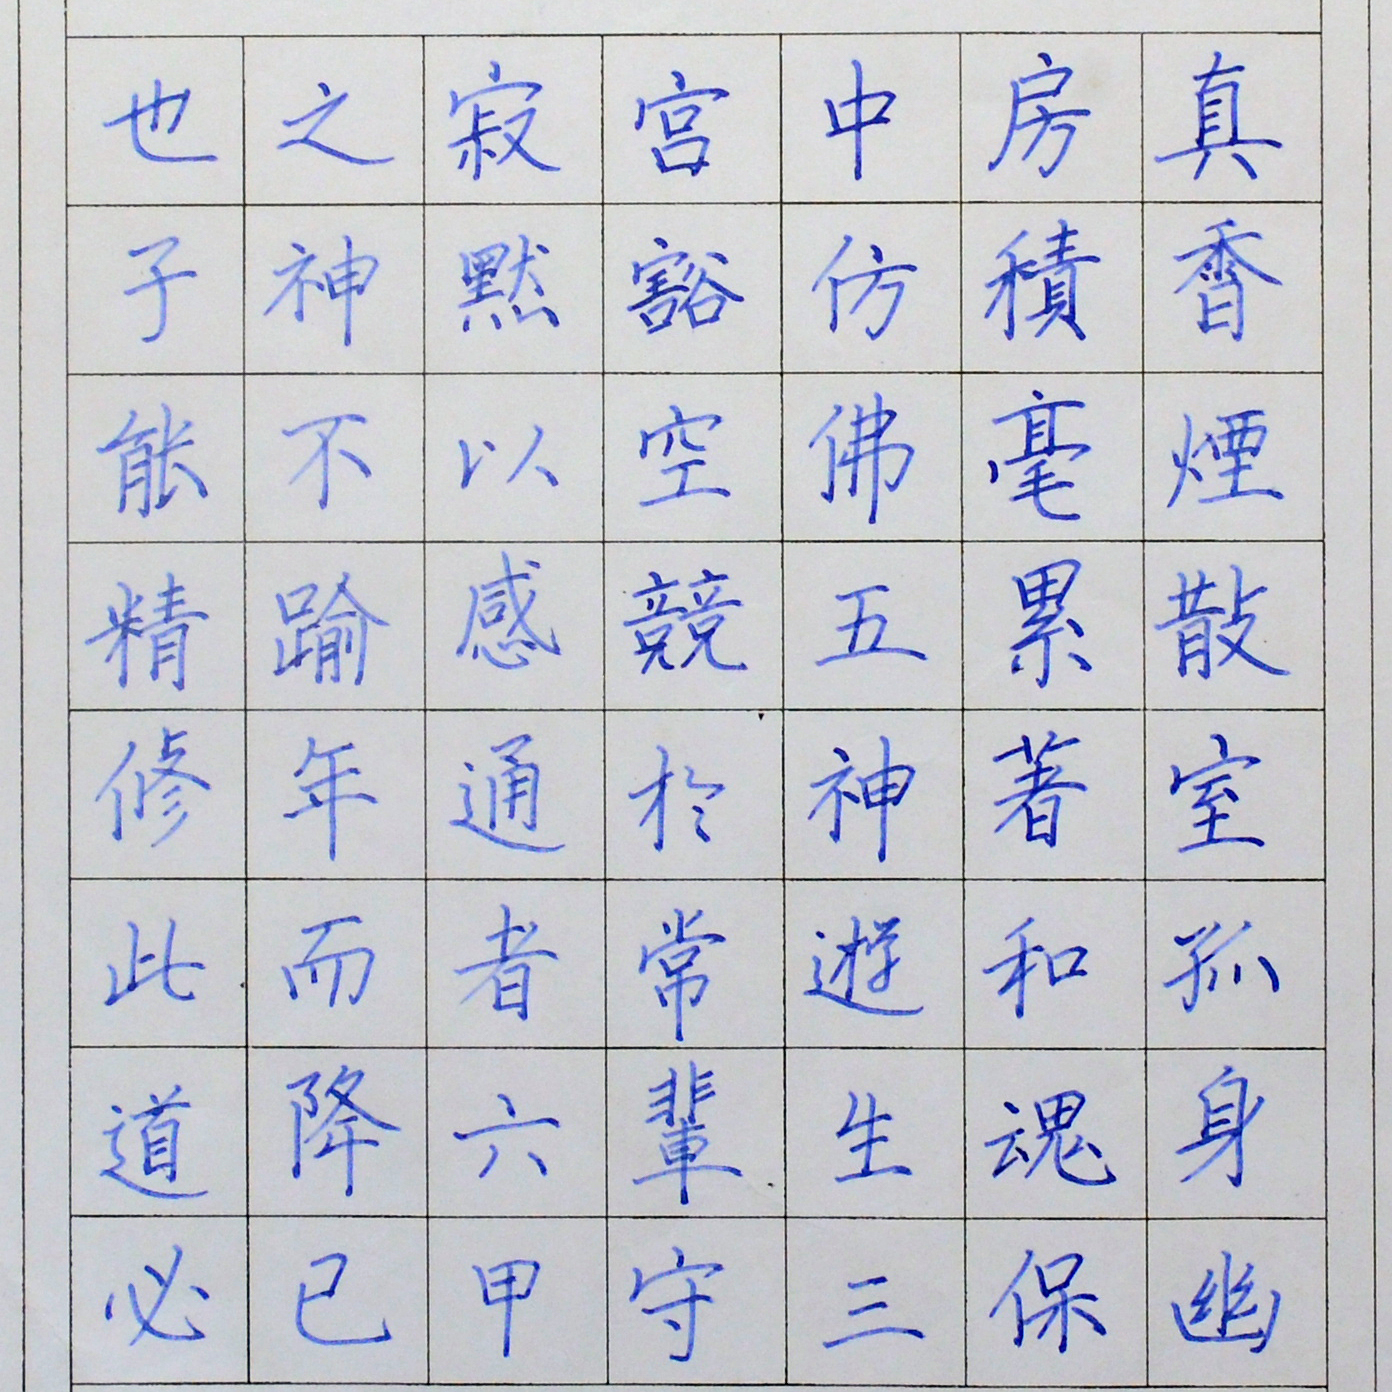 真香煙散室孤身幽
房積毫累著和魂保
中仿佛五神遊生三
宮豁空競於常輩守
寂默以感通者六甲
之神不踰年而降已
也子能精修此道必